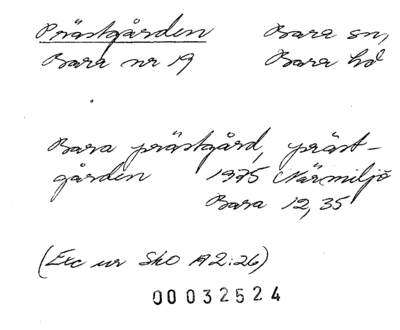 Prästgården Bara sn,
Bara nr 19 Bara hd
Bara prästgård, präst-
gården 1975 Närmiljö
Bara 12, 35
(Exc ur SkO A2:26)
00032524